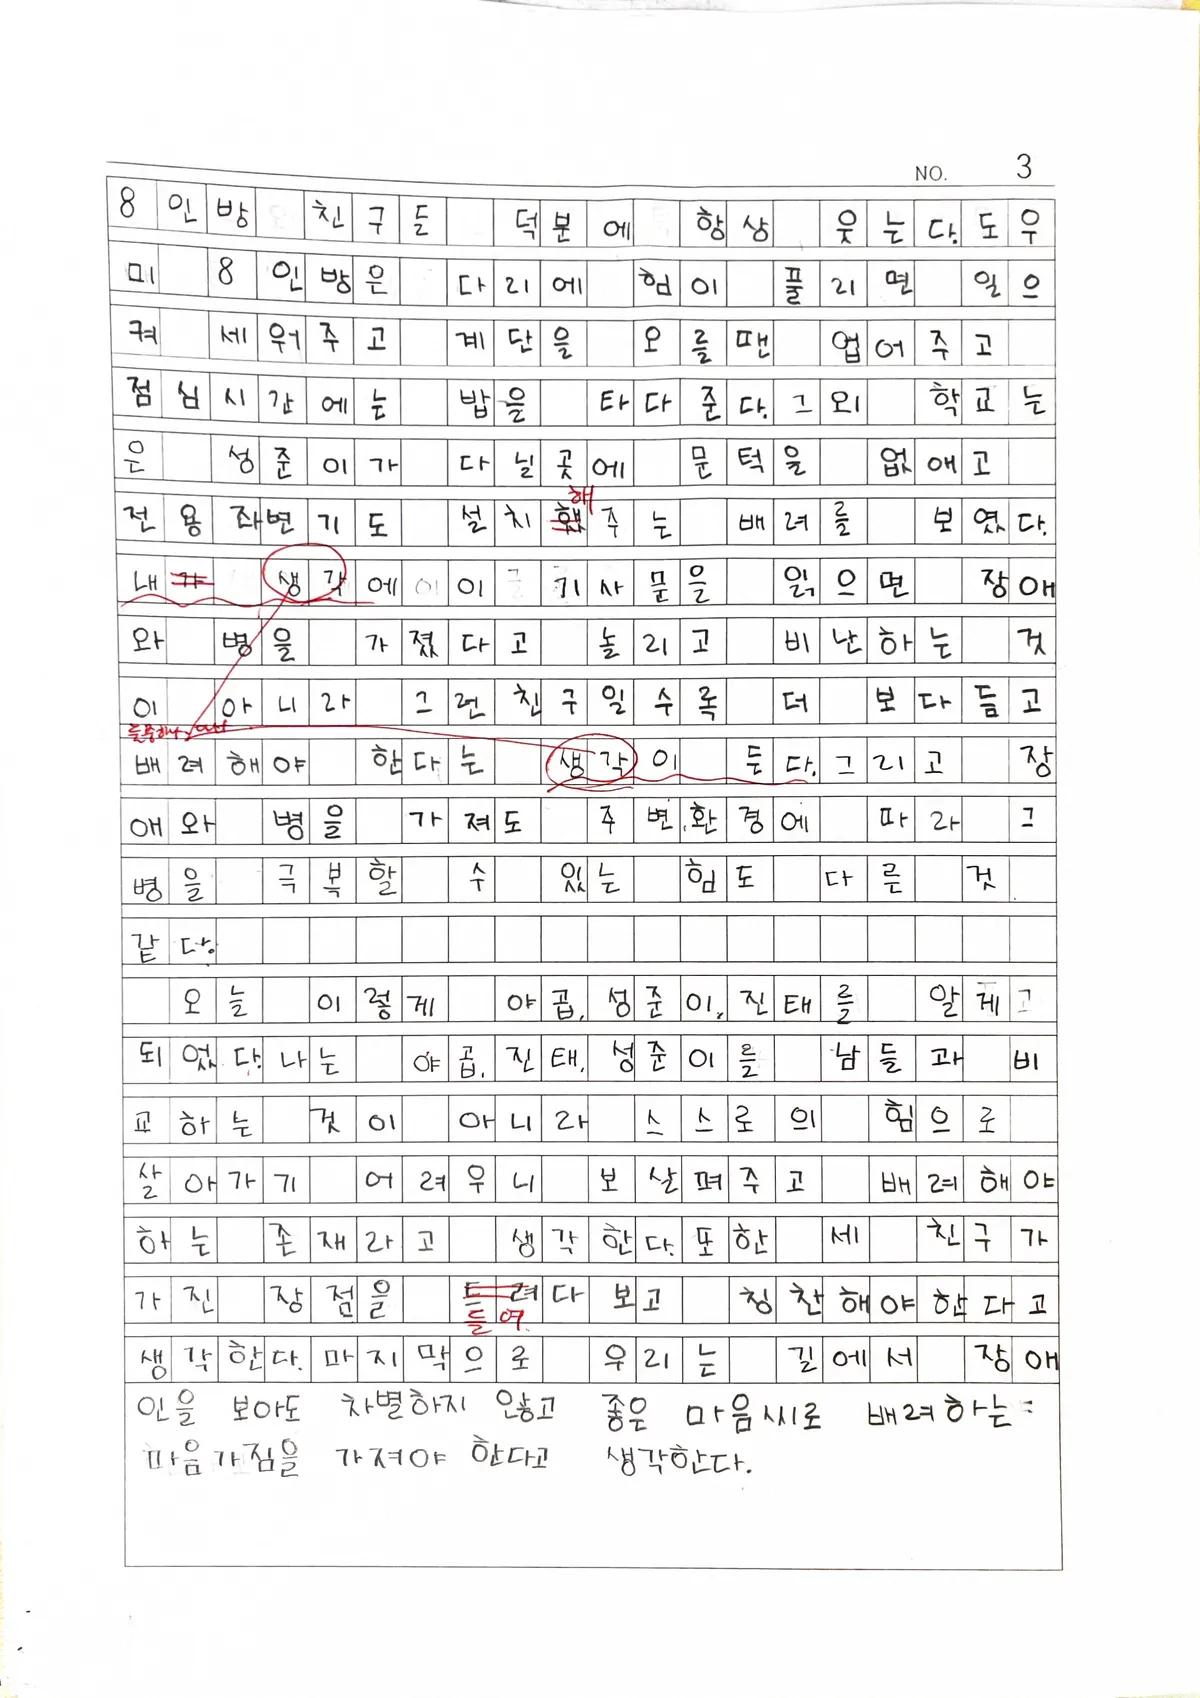 NO. 3
8인방 친구들 덕분에 항상 웃는다. 도우
미 8인방은 다리에 힘이 풀리면 일으
켜 세워주고 계단을 오를땐 엽어주고
점심시간에는 밥을 타다준다. 그외 학교는
은 성준이가 다닐곳에 문턱을 없애고
해
전용좌변기도 설치했주는 배려를 보였다.
내가 생각에 이 기사문을 읽으면 장애
와 병을 가졌다고 놀리고 비난하는 것
이 아니라 그런친구일수록 더 보다듬고
배려해야 한다는 생각이 든다. 그리고 장
애와 병을 가져도 주변.환경에 따라 그
병을 극복할 수 있는 힘도 다른 것
같다.
오늘 이렇게 야곱, 성준이, 진태를 알게
되었다. 나는 야곱, 진태, 성준이를 남들과 비
교하는 것이 아니라 스스로의 힘으로
살아가기 어려우니 보살펴주고 배려해야
하는 존재라고 생각한다. 또한 세 친구가
가진 장점을 드려다 보고 칭찬해야한다고
들여
생각한다. 마지막으로 우리는 길에서 장애
인을 보아도 차별하지 않고 좋은 마음씨로 배려하는
마음가짐을 가져야 한다고 생각한다.